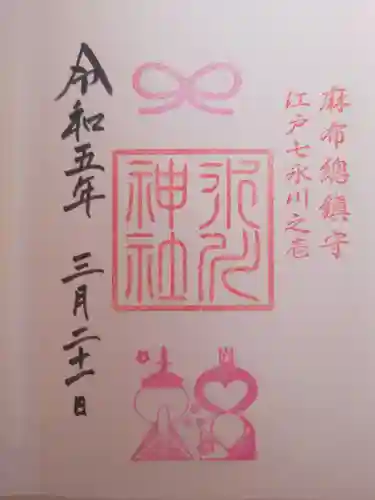 麻布總鎮守
江戸七氷川之壱
氷川
神社
令和五年 三月二十一日